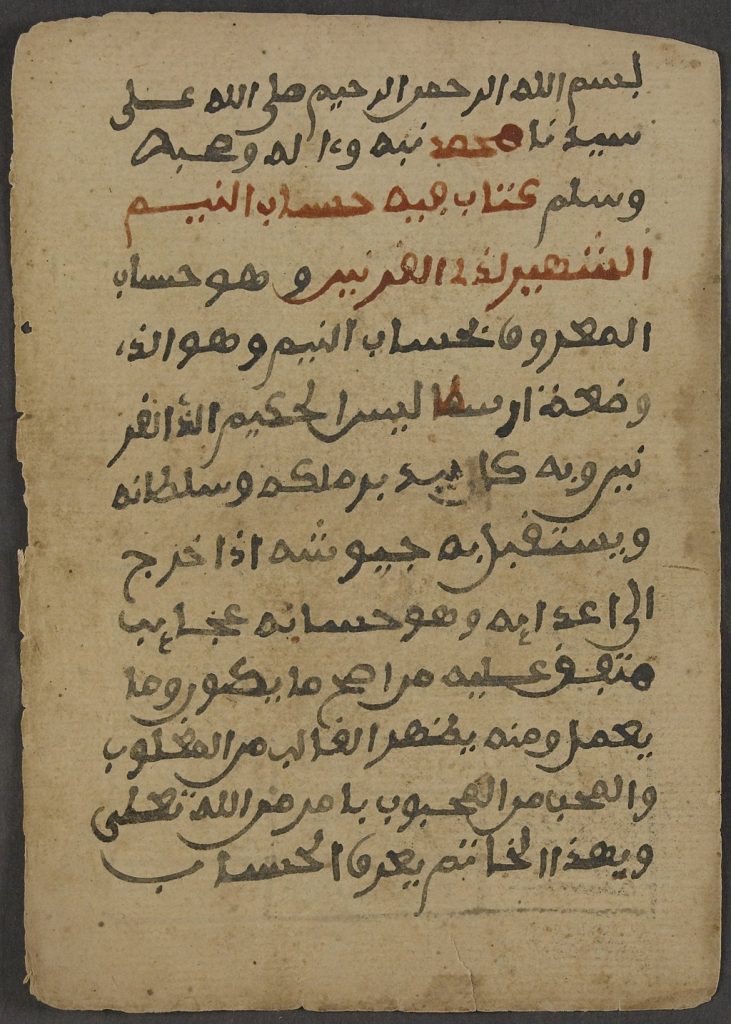 بسم الله الرحمن الرحيم صلى الله على
سيدنا محمد نبيه وءاله وصحبه
وسلم كتاب فيه حساب النيم
الشهير لذى القرنين وهو حساب
المعروف بحساب النيم وهو الذى
وضعه ارسطاليس الحكيم الذالقر
نين وبه كان يدبر ملكه وسلطانه
ويستقبل به جيوشه اذا خرج
الى اعدايه وهو حسابه عجايب
متفق عليه من اهم ما يكون وما
يعمل ومنه يظهر الغالب من المغلوب
والمحب من المحبوب بامر من الله تعلى
وبهذا الخاتم يعرف الحساب